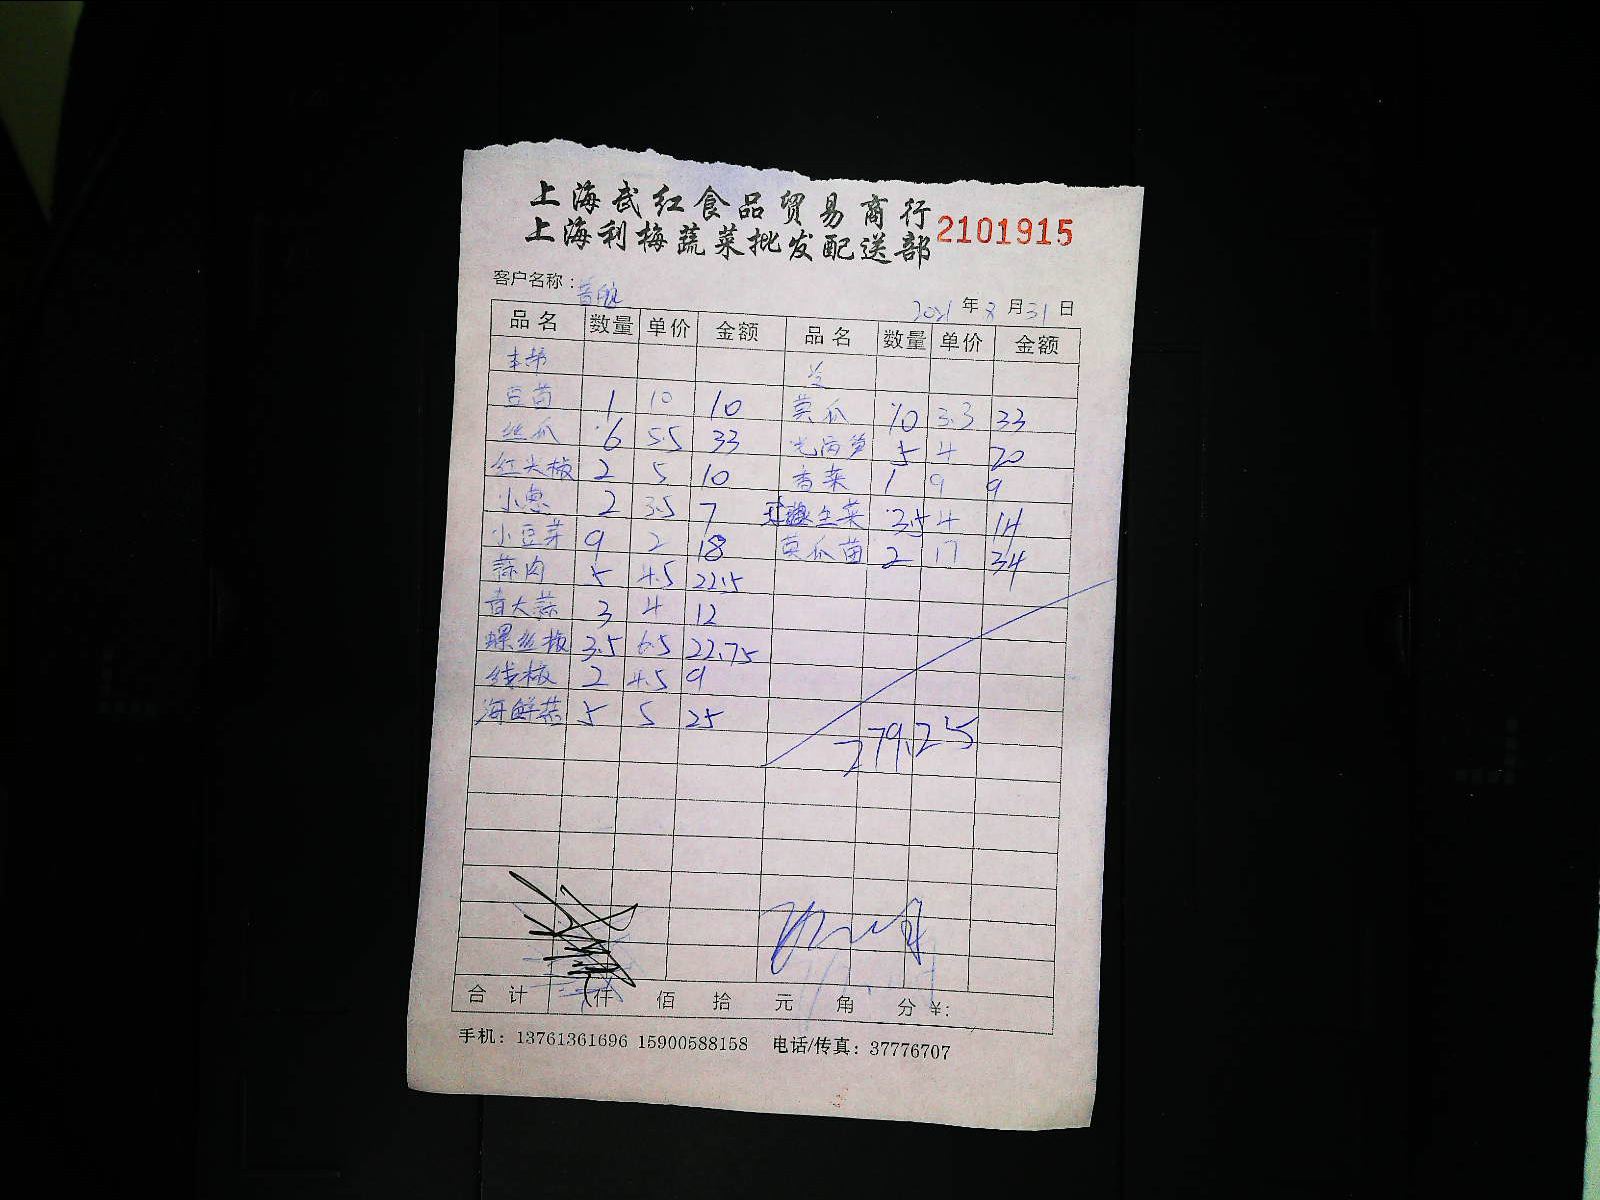 上海武红食品贸易商行
上海利梅蔬菜批发配送部 2101915
客户名称：
2021年8月31日
品名 数量 单价 金额 品名 数量 单价 金额
本帮
豆苗 1 10 10 黄瓜 10 3.3 33
丝瓜 6 5.5 33 光莴笋 5 4 20
红尖椒 2 5 10 香菜 1 9 9
小葱 2 3.5 7 生菜 3.5 4 14
小豆芽 9 2 18 黄瓜苗 2 17 34
蒜肉 5 4.5 22.5
青大蒜 3 4 12
螺丝椒 3.5 6.5 22.75
线椒 2 4.5 9
海鲜菇 5 5 25
279.25
合计 仟 佰 拾 元 角 分 ¥:
手机：13761361696 15900588158 电话/传真：37776707